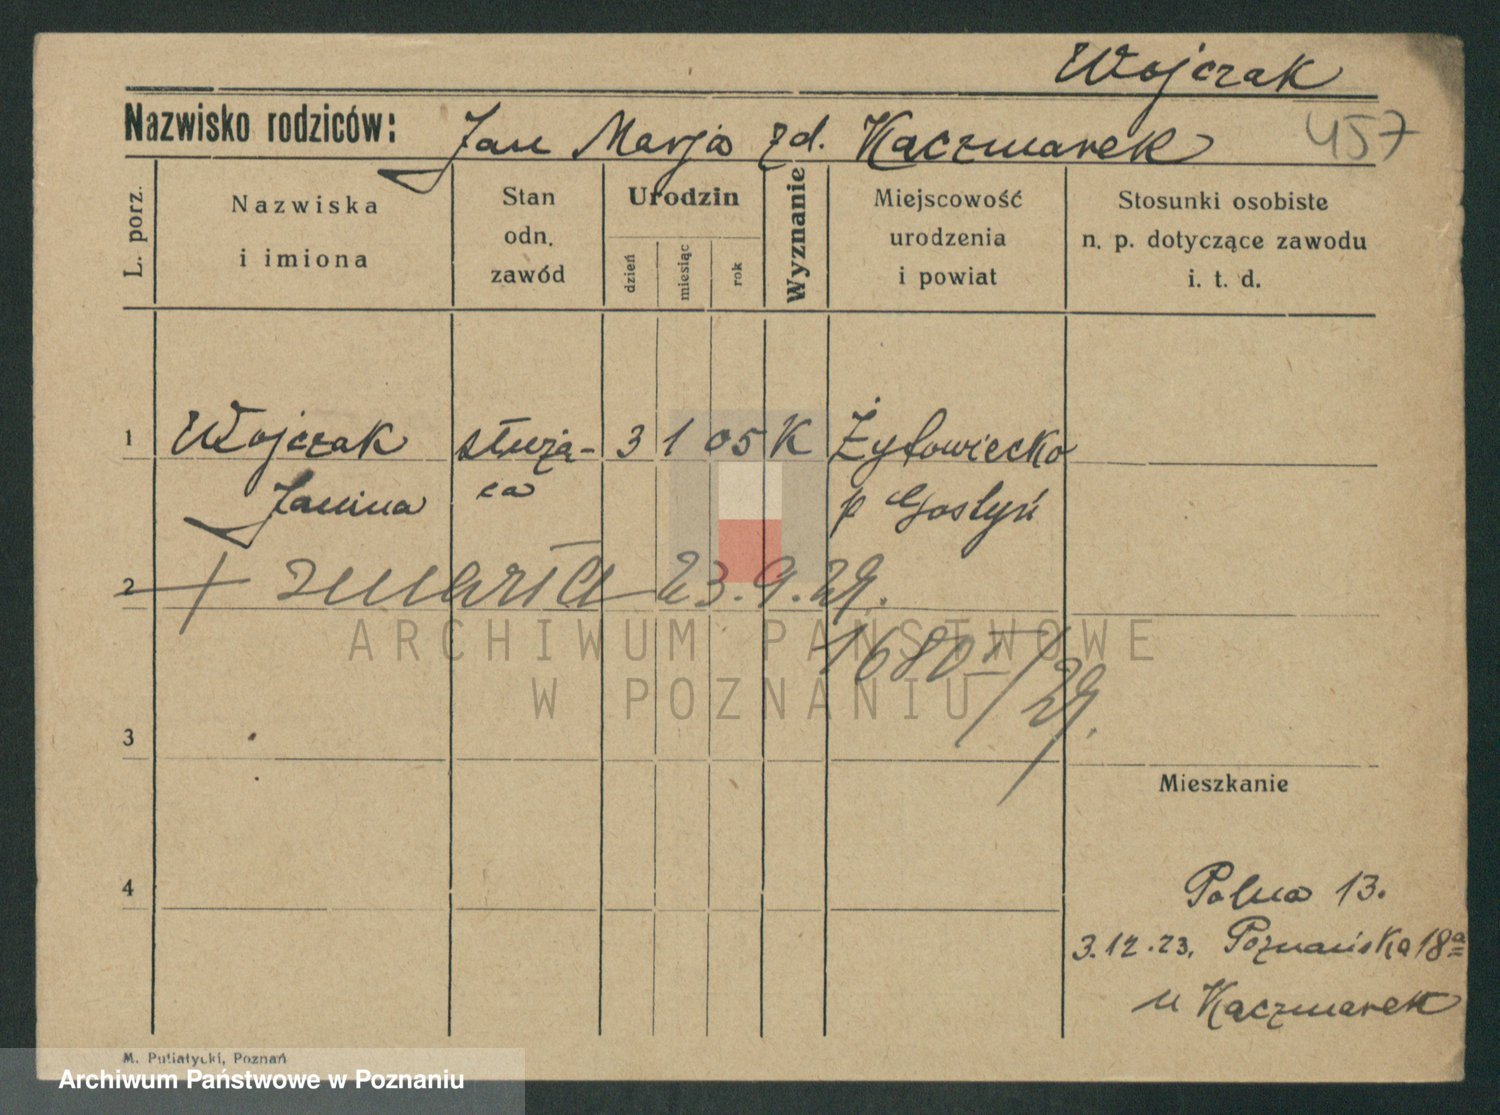 Wojczak
Nazwisko rodziców: Jan Marja zd. Kaczmarek 457
L. porz.
Nazwiska i imiona
Stan odn. zawód
Urodzin
dzień miesiąc rok
Wyznanie
Miejscowość urodzenia i powiat
Stosunki osobiste n. p. dotyczące zawodu i. t. d.
1 Wojczak służą- 3 1 05 K Żytowiecko
Janina ca p Gostyń
2 + zmarła 23.9.29.
1680 II/29.
ARCHIWUM PAŃSTWOWE
W POZNANIU
3
Mieszkanie
4
Polna 13.
3.12.23. Poznańska 18a
u Kaczmarek
M. Putiatycki, Poznań
Archiwum Państwowe w Poznaniu